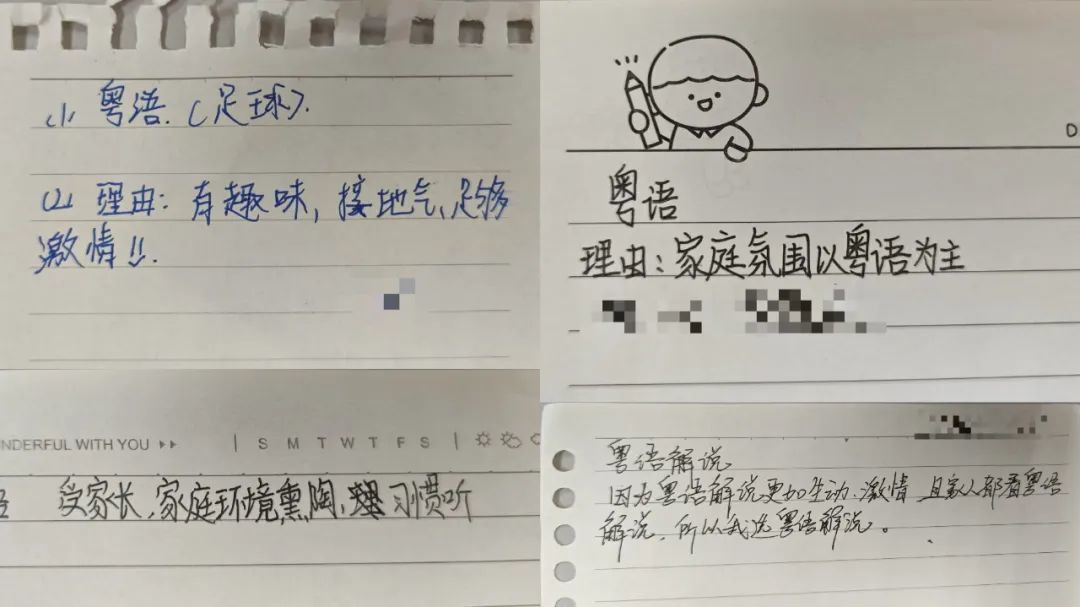 (1) 粤语.(足球).
(2) 理由: 有趣味, 接地气, 足够
激情!!.
粤语
理由:家庭氛围以粤语为主
NDERFUL WITH YOU
S M T W T F S
受家长,家庭环境熏陶, 习惯听
粤语解说
因为粤语解说更加生动、激情,且家人都看粤语
解说,所以我选粤语解说。